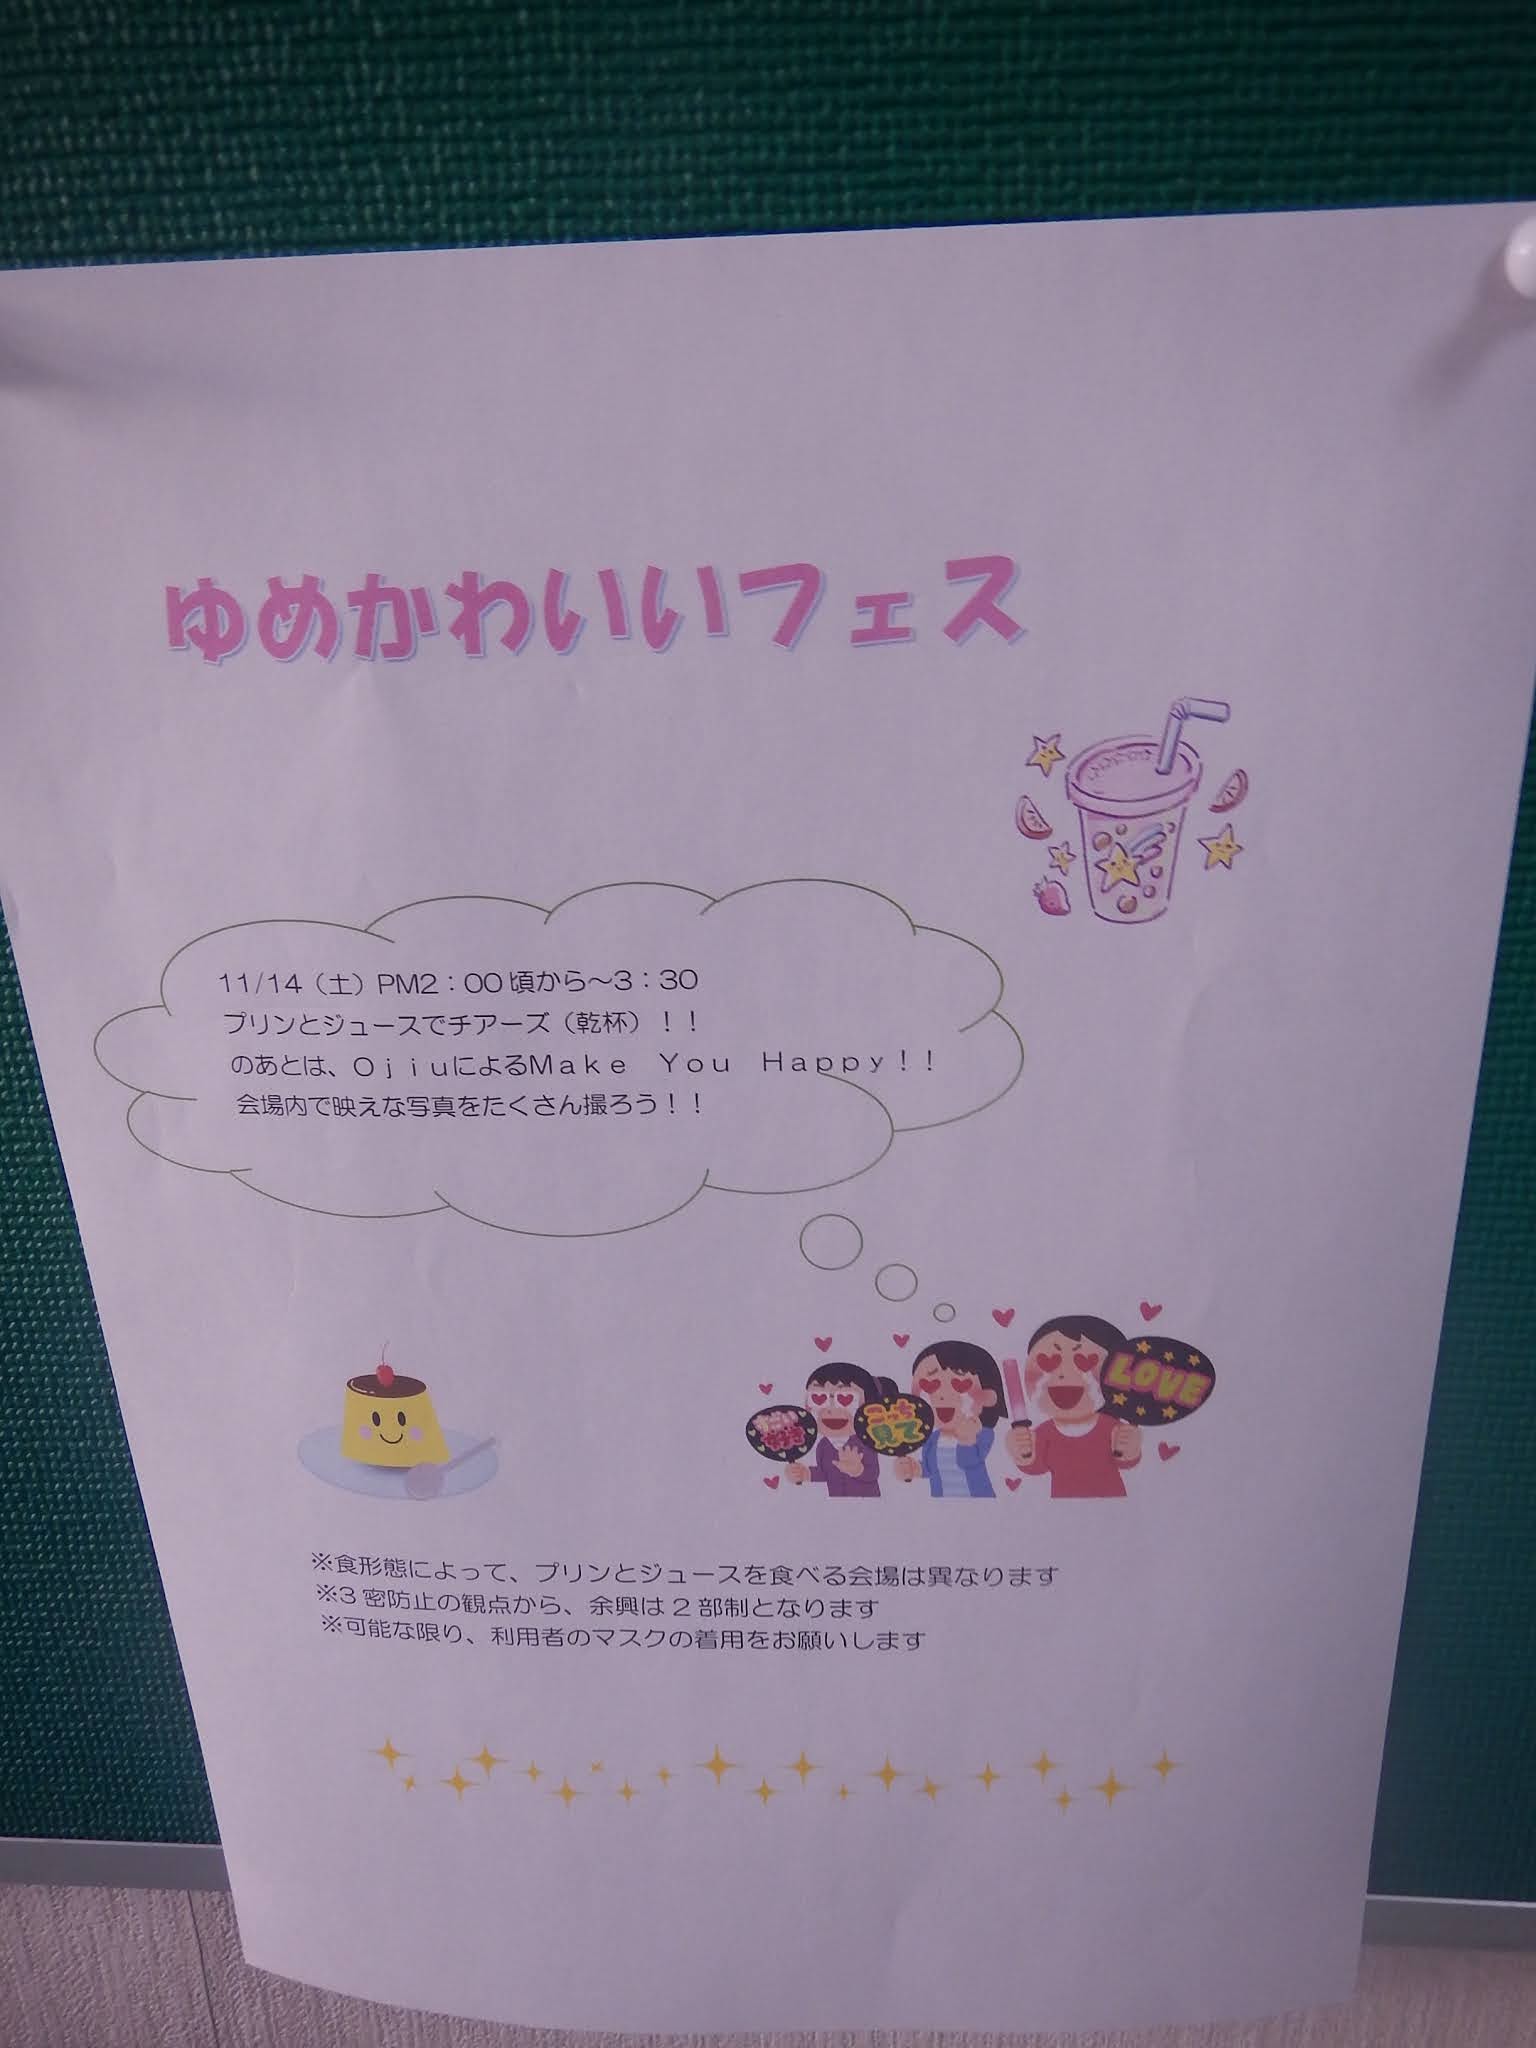 ゆめかわいいフェス
11/14（土）PM2：00頃から～3：30
プリンとジュースでチアーズ（乾杯）！！
のあとは、ＯｊｉｕによるＭａｋｅ　Ｙｏｕ　Ｈａｐｐｙ！！
会場内で映えな写真をたくさん撮ろう！！
LOVE
こっち
見て
※食形態によって、プリンとジュースを食べる会場は異なります
※3密防止の観点から、余興は2部制となります
※可能な限り、利用者のマスクの着用をお願いします